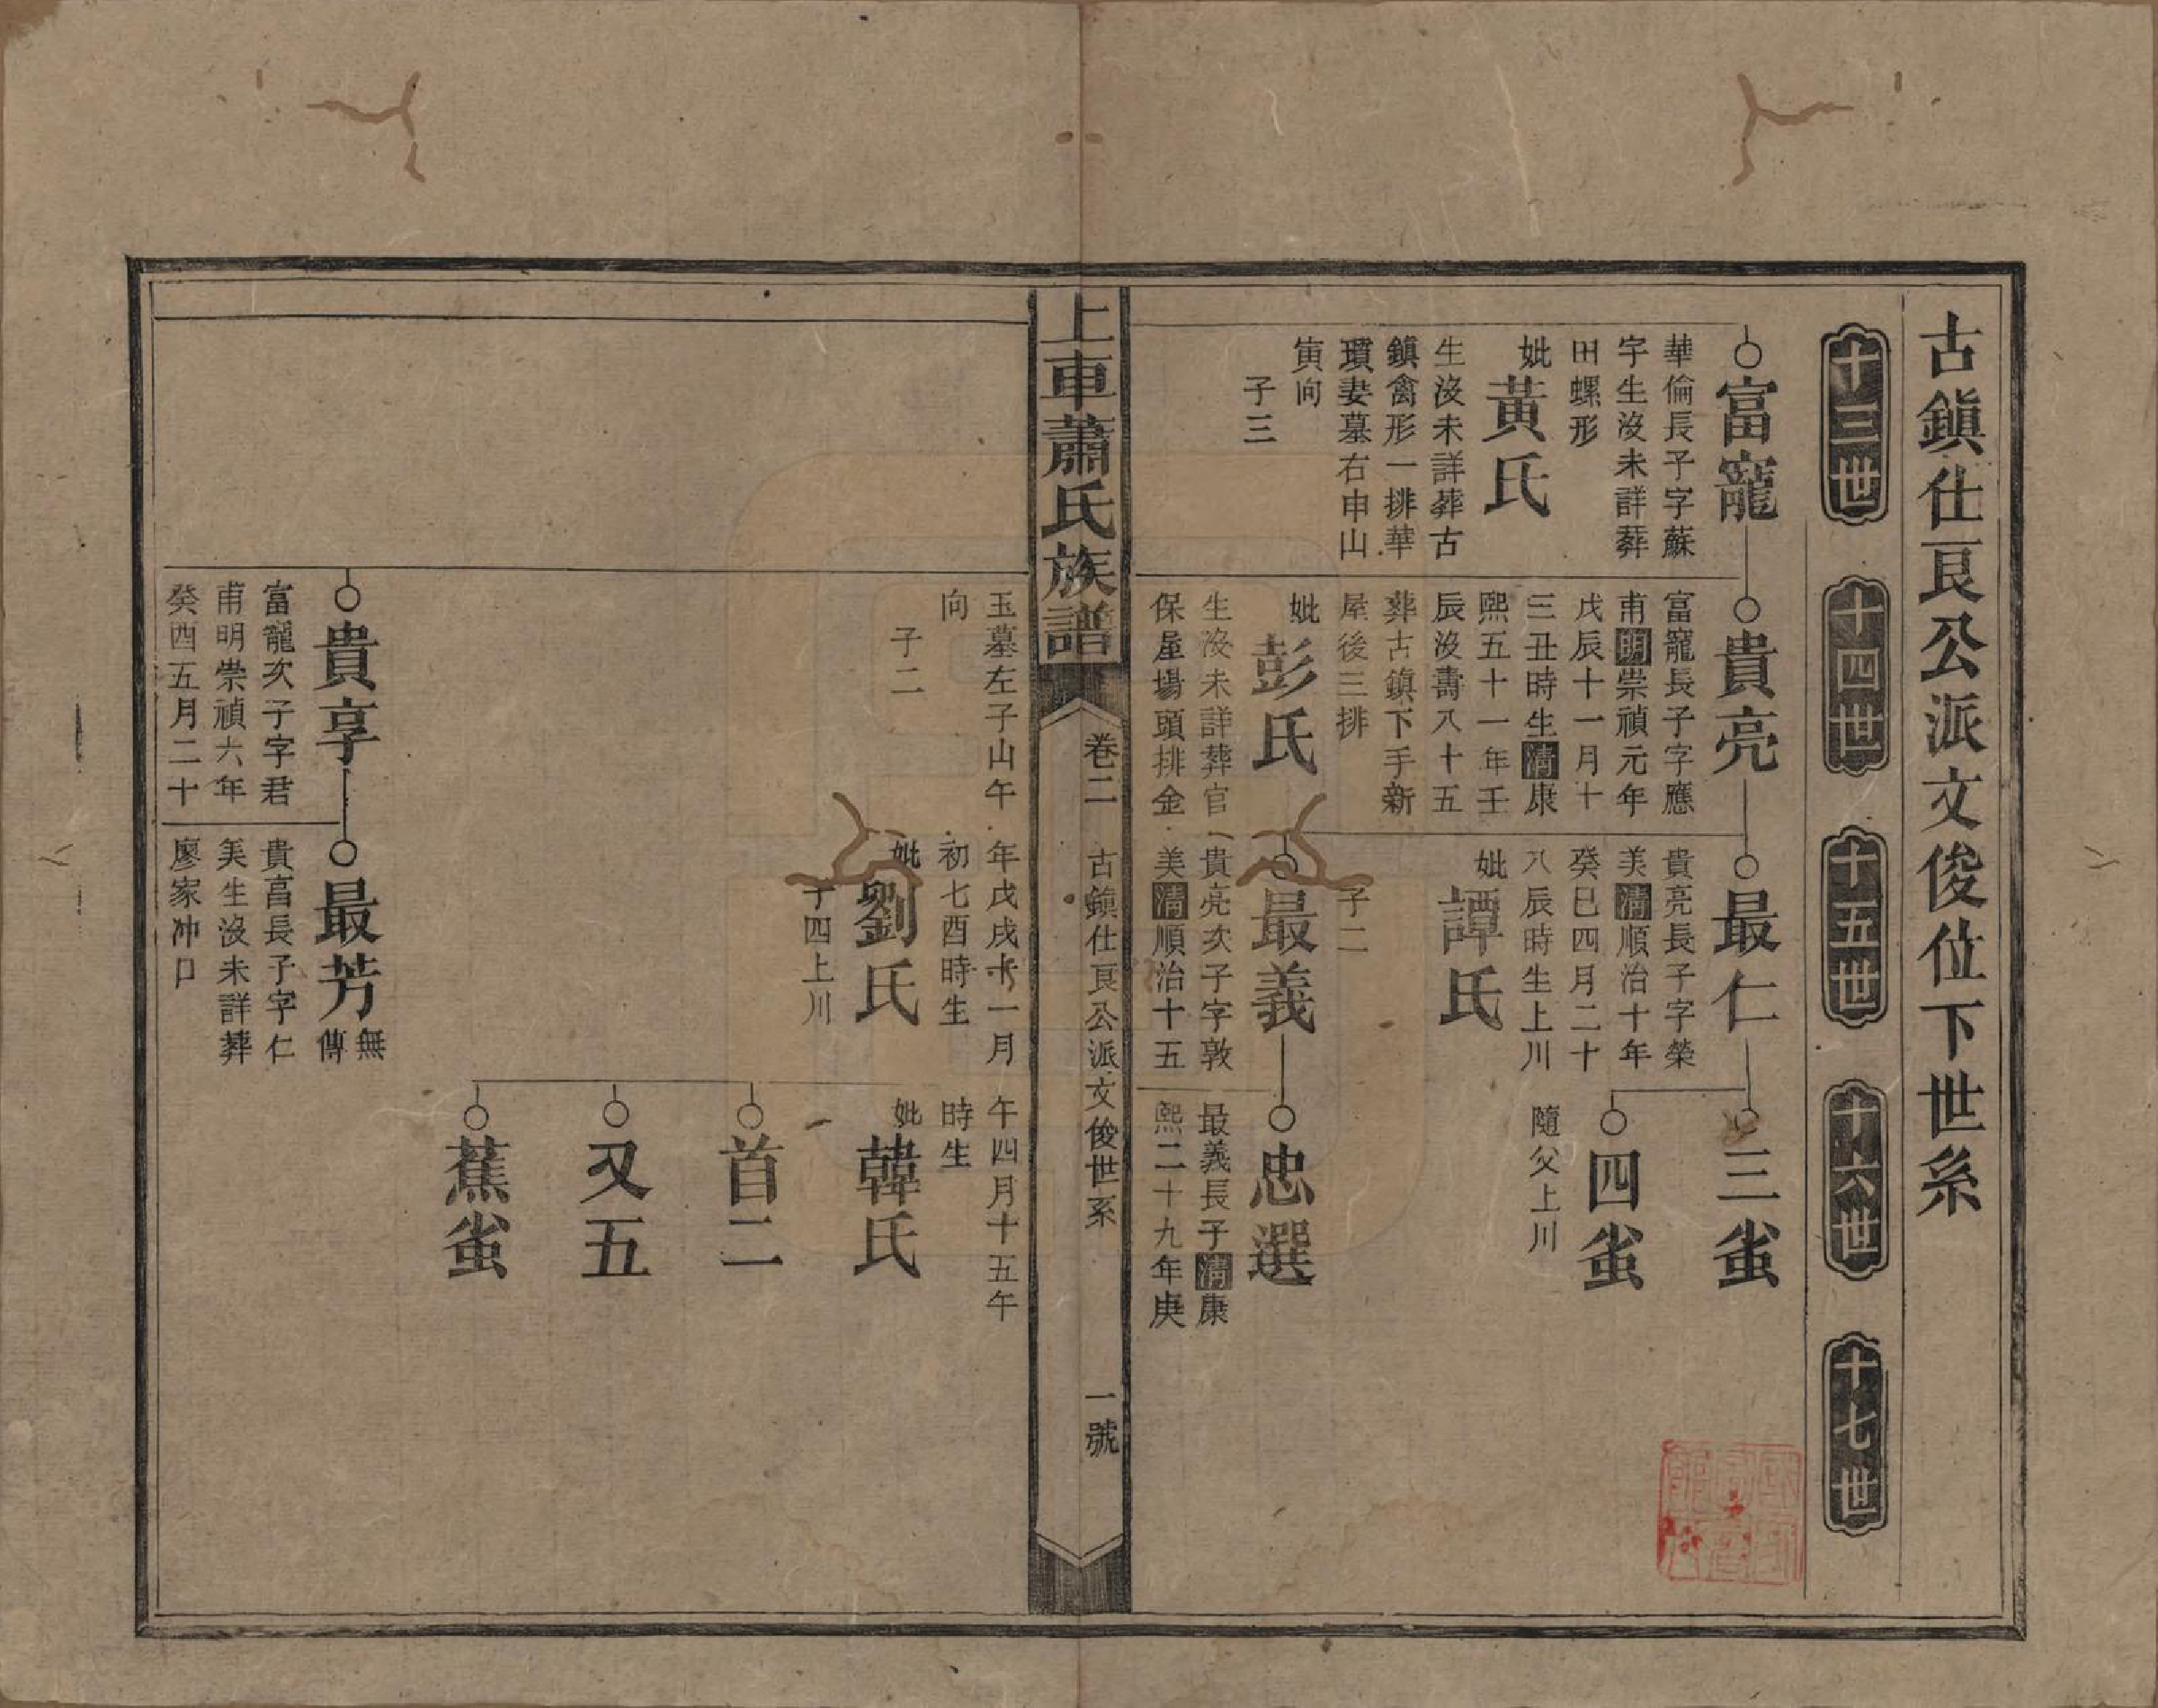 古鎭仕良公派文俊位下世系
十三世
十四世
十五世
十六世
十七世
富寵
華倫長子字蘇
宇生沒未詳葬
田螺形
妣
黃氏
生沒未詳葬古
鎮禽形一排華
瓚妻墓右申山
寅向
子三
貴亮
富寵長子字應
甫明崇禎元年
戊辰十一月十
三丑時生清康
熙五十一年壬
辰沒壽八十五
葬古鎮下手新
屋後三排
妣
彭氏
生沒未詳葬官
保屋場頭排金
最仁
貴亮長子字榮
美清順治十年
癸巳四月二十
八辰時生上川
妣
譚氏
子二
最義
貴亮次子字敦
美清順治十五
三䖝
四䖝
隨父上川
忠選
最義長子清康
熙二十九年庚
上車蕭氏族譜
卷二
古鎭仕良公派文俊世系
一號
玉墓左子山午
向
子二
年戊戌十一月
初七酉時生
妣
劉氏
子四上川
午四月十五午
時生
妣
韓氏
首二
又五
蕉䖝
貴享
富寵次子字君
甫明崇禎六年
癸酉五月二十
最芳
無傳
貴富長子字仁
美生沒未詳葬
廖家冲口